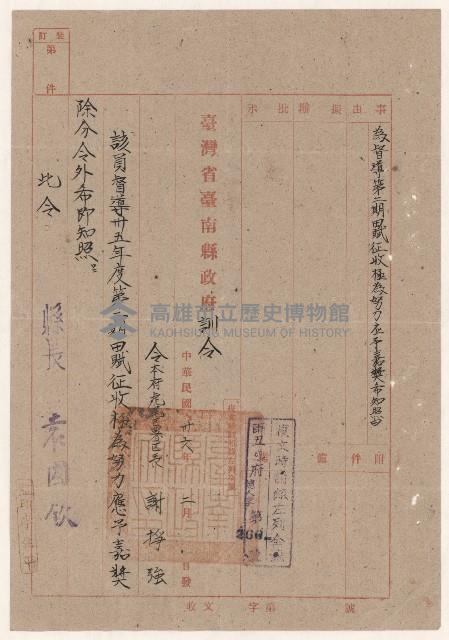 事由
為督導第二期田賦征收極為努力應予嘉獎希知照由
擬辦
批示
附件
備
復文時請錄左列全銜
府
第
260
號
臺灣省臺南縣政府訓令
中華民國卅六年二月 日發
令本府虎尾區署區長 謝掙強
該員督導卅五年度第二期田賦征收極為努力應予嘉獎
除分令外希即知照。
此令
縣長 袁國欽
裝訂
第 件
收文 字第 號
高雄市立歷史博物館
KAOHSIUNG MUSEUM OF HISTORY